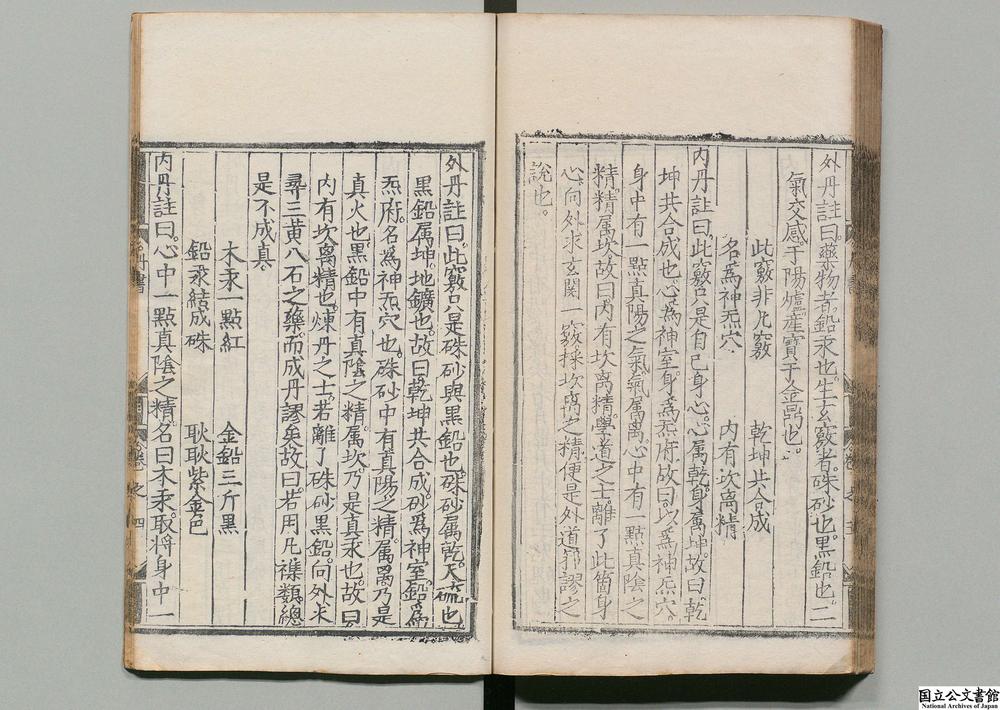 外丹註曰藥物者鉛汞也生玄竅者硃砂也黒鉛也二
氣交感于陽爐産寶于金鼎也
此竅非凡竅 乾坤共合成
名爲神炁穴 内有坎离精
内丹註曰此竅只是自己身心心属乾身属坤故曰乾
坤共合成也心爲神室身爲炁府故曰以爲神炁穴
身中有一點真陽之氣氣属离心中有一點真陰之
精精属坎故曰内有坎离精學道之士離了此箇身
心向外求玄関一竅採坎离之精便是外道邪謬之
說也
外丹註曰此竅只是硃砂與黒鉛也硃砂属乾天硫也
黒鉛属坤地鑛也故曰乾坤共合成砂爲神室鉛爲
炁府名爲神炁穴也硃砂中有真陽之精属离乃是
真火也黒鉛中有真陰之精属坎乃是真汞也故曰
内有坎离精也煉丹之士若離了硃砂黒鉛向外求
尋三黄八石之藥而成丹謬矣故曰若用凡襍類總
是不成真
木汞一點紅 金鉛三斤黒
鉛汞結成硃 耿耿紫金色
内丹註曰心中一點真陰之精名曰木汞取将身中一
之四
国立公文書館
National Archives of Japan